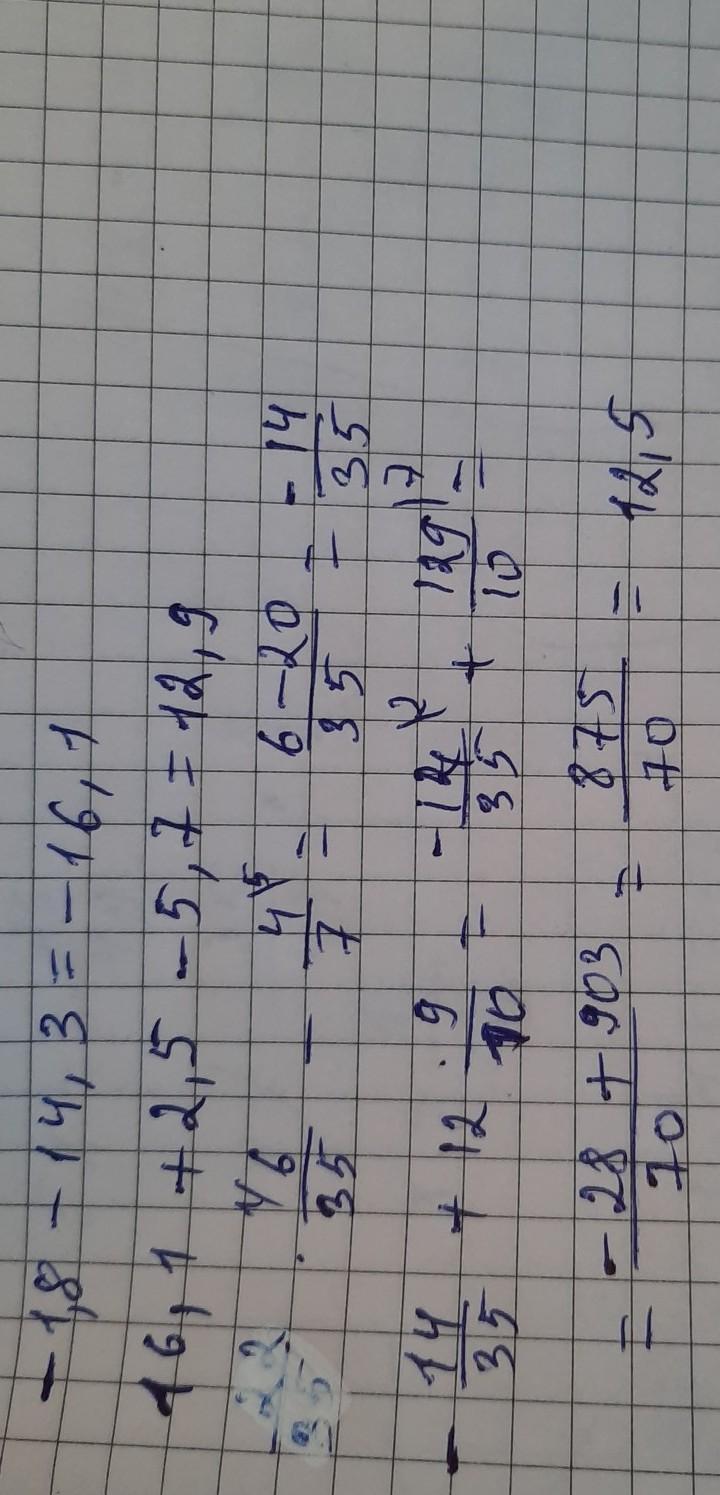 -1,8 - 14,3 = -16,1
16,1 + 2,5 - 5,7 = 12,9
6/35 - 4/7 = 6-20/35 = -14/35
-14/35 + 12 9/10 = -14/35 + 129/10 =
= -28+903/70 = 875/70 = 12,5